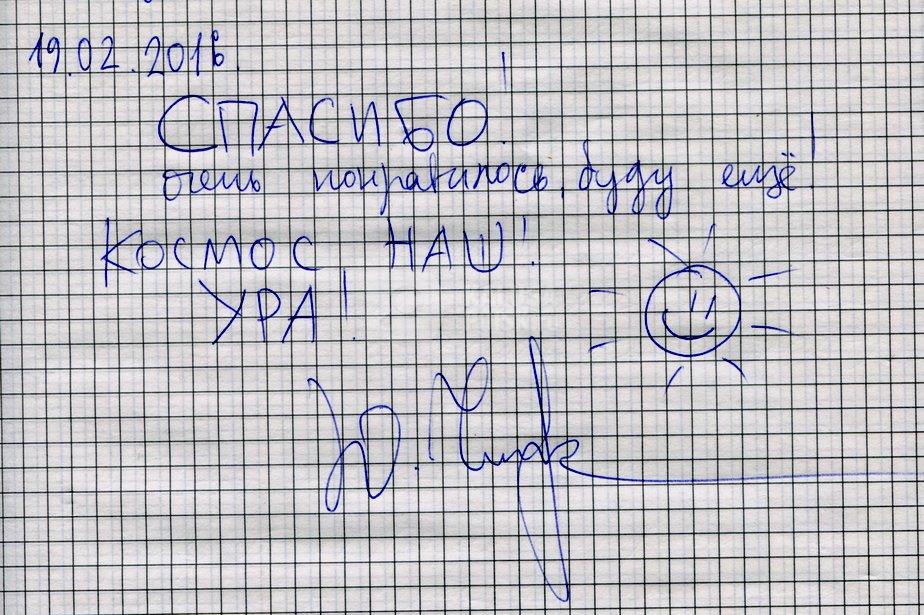 19.02.2016.
СПАСИБО!
очень понравилось, буду ещё!
КОСМОС НАШ!
УРА!
Ю.